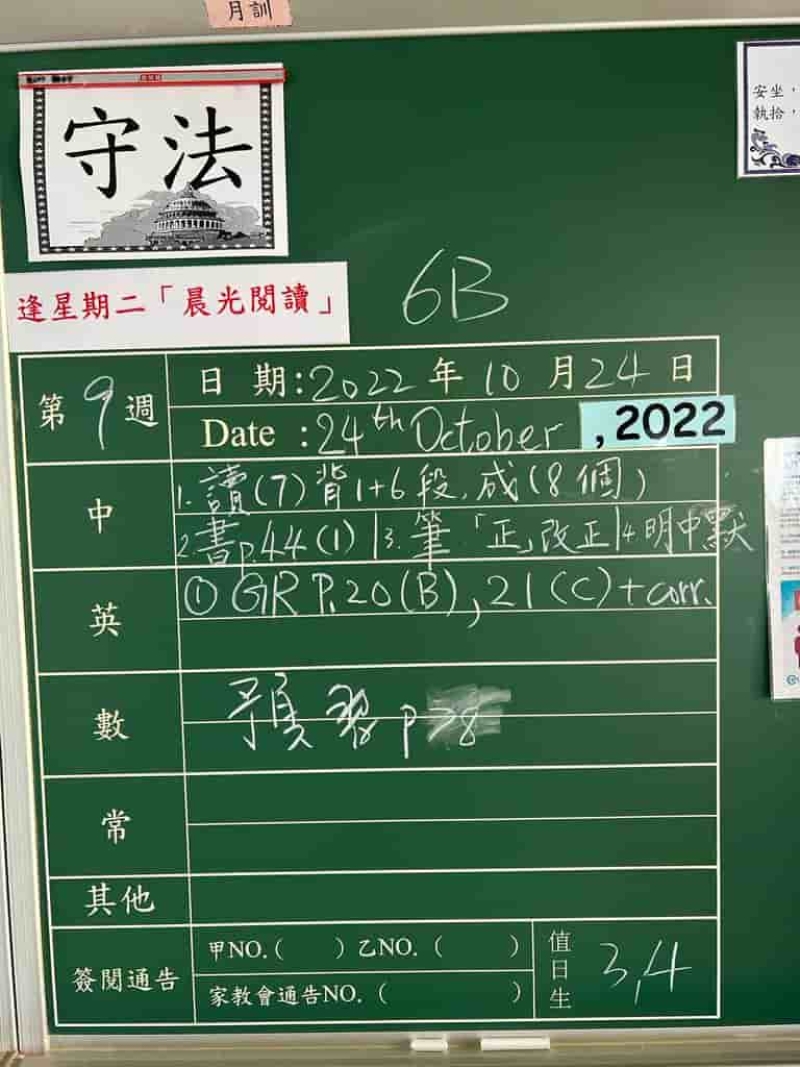 月訓
守法
安坐，
執拾，
逢星期二「晨光閱讀」
6B
第9週
日 期:2022年10月24日
Date :24th October ,2022
中
1.讀(7)背1+6段,成(8個)
2.書p.44(1) 3.筆「正」改正 4.明中默
英
① GR P.20(B),21(C)+corr.
數
預習p 78
常
其他
簽閱通告
甲NO.( )乙NO.( )
家教會通告NO.( )
值日生
3,4